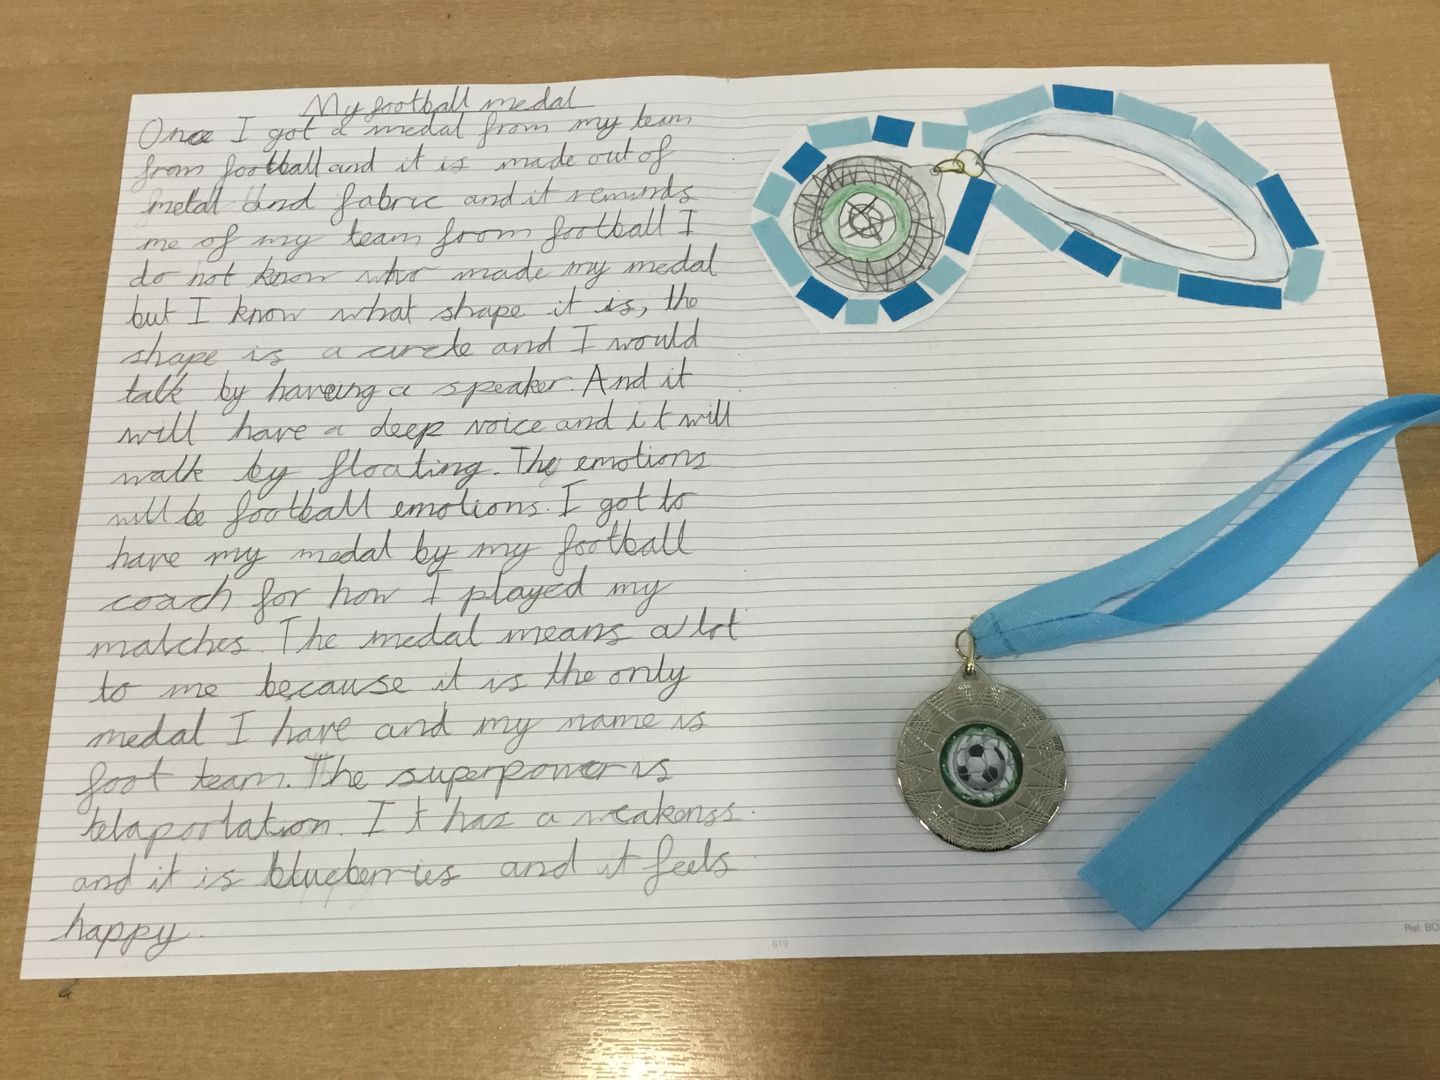 My football medal
Once I got a medal from my team
from football and it is made out of
metal and fabric and it reminds
me of my team from football I
do not know who made my medal
but I know what shape it is, the
shape is a circle and I would
talk by haveing a speaker. And it
will have a deep voice and it will
walk by floating. The emotions
will be football emotions. I got to
have my medal by my football
coach for how I played my
matches. The medal means a lot
to me because it is the only
medal I have and my name is
foot team. The superpower is
telaportation. It has a weakenss.
and it is blueberries and it feels
happy.
619
Ref: BO